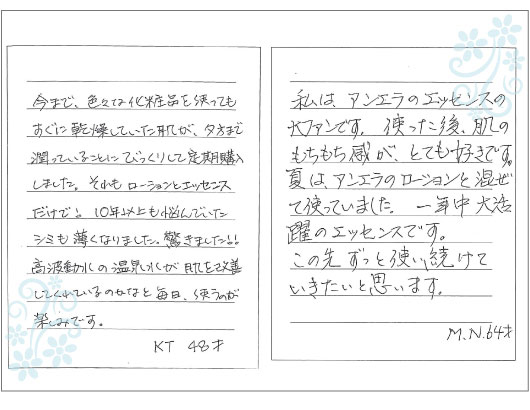 今まで、色々な化粧品を使っても
すぐに乾燥していた肌が、夕方まで
潤っていることにびっくりして定期購入
しました。それもローションとエッセンス
だけで!10年以上も悩んでいた
シミも薄くなりました。驚きました!!
高波動水の温泉水が肌を改善
してくれているのかなと毎日、使うのが
楽しみです。
KT 48才
私は、アンエラのエッセンスの
大ファンです。使った後、肌の
もちもち感が、とても好きです。
夏は、アンエラのローションと混ぜ
て使っていました。一年中大活
躍のエッセンスです。
この先ずっと使い続けて
いきたいと思います。
M.N.64才